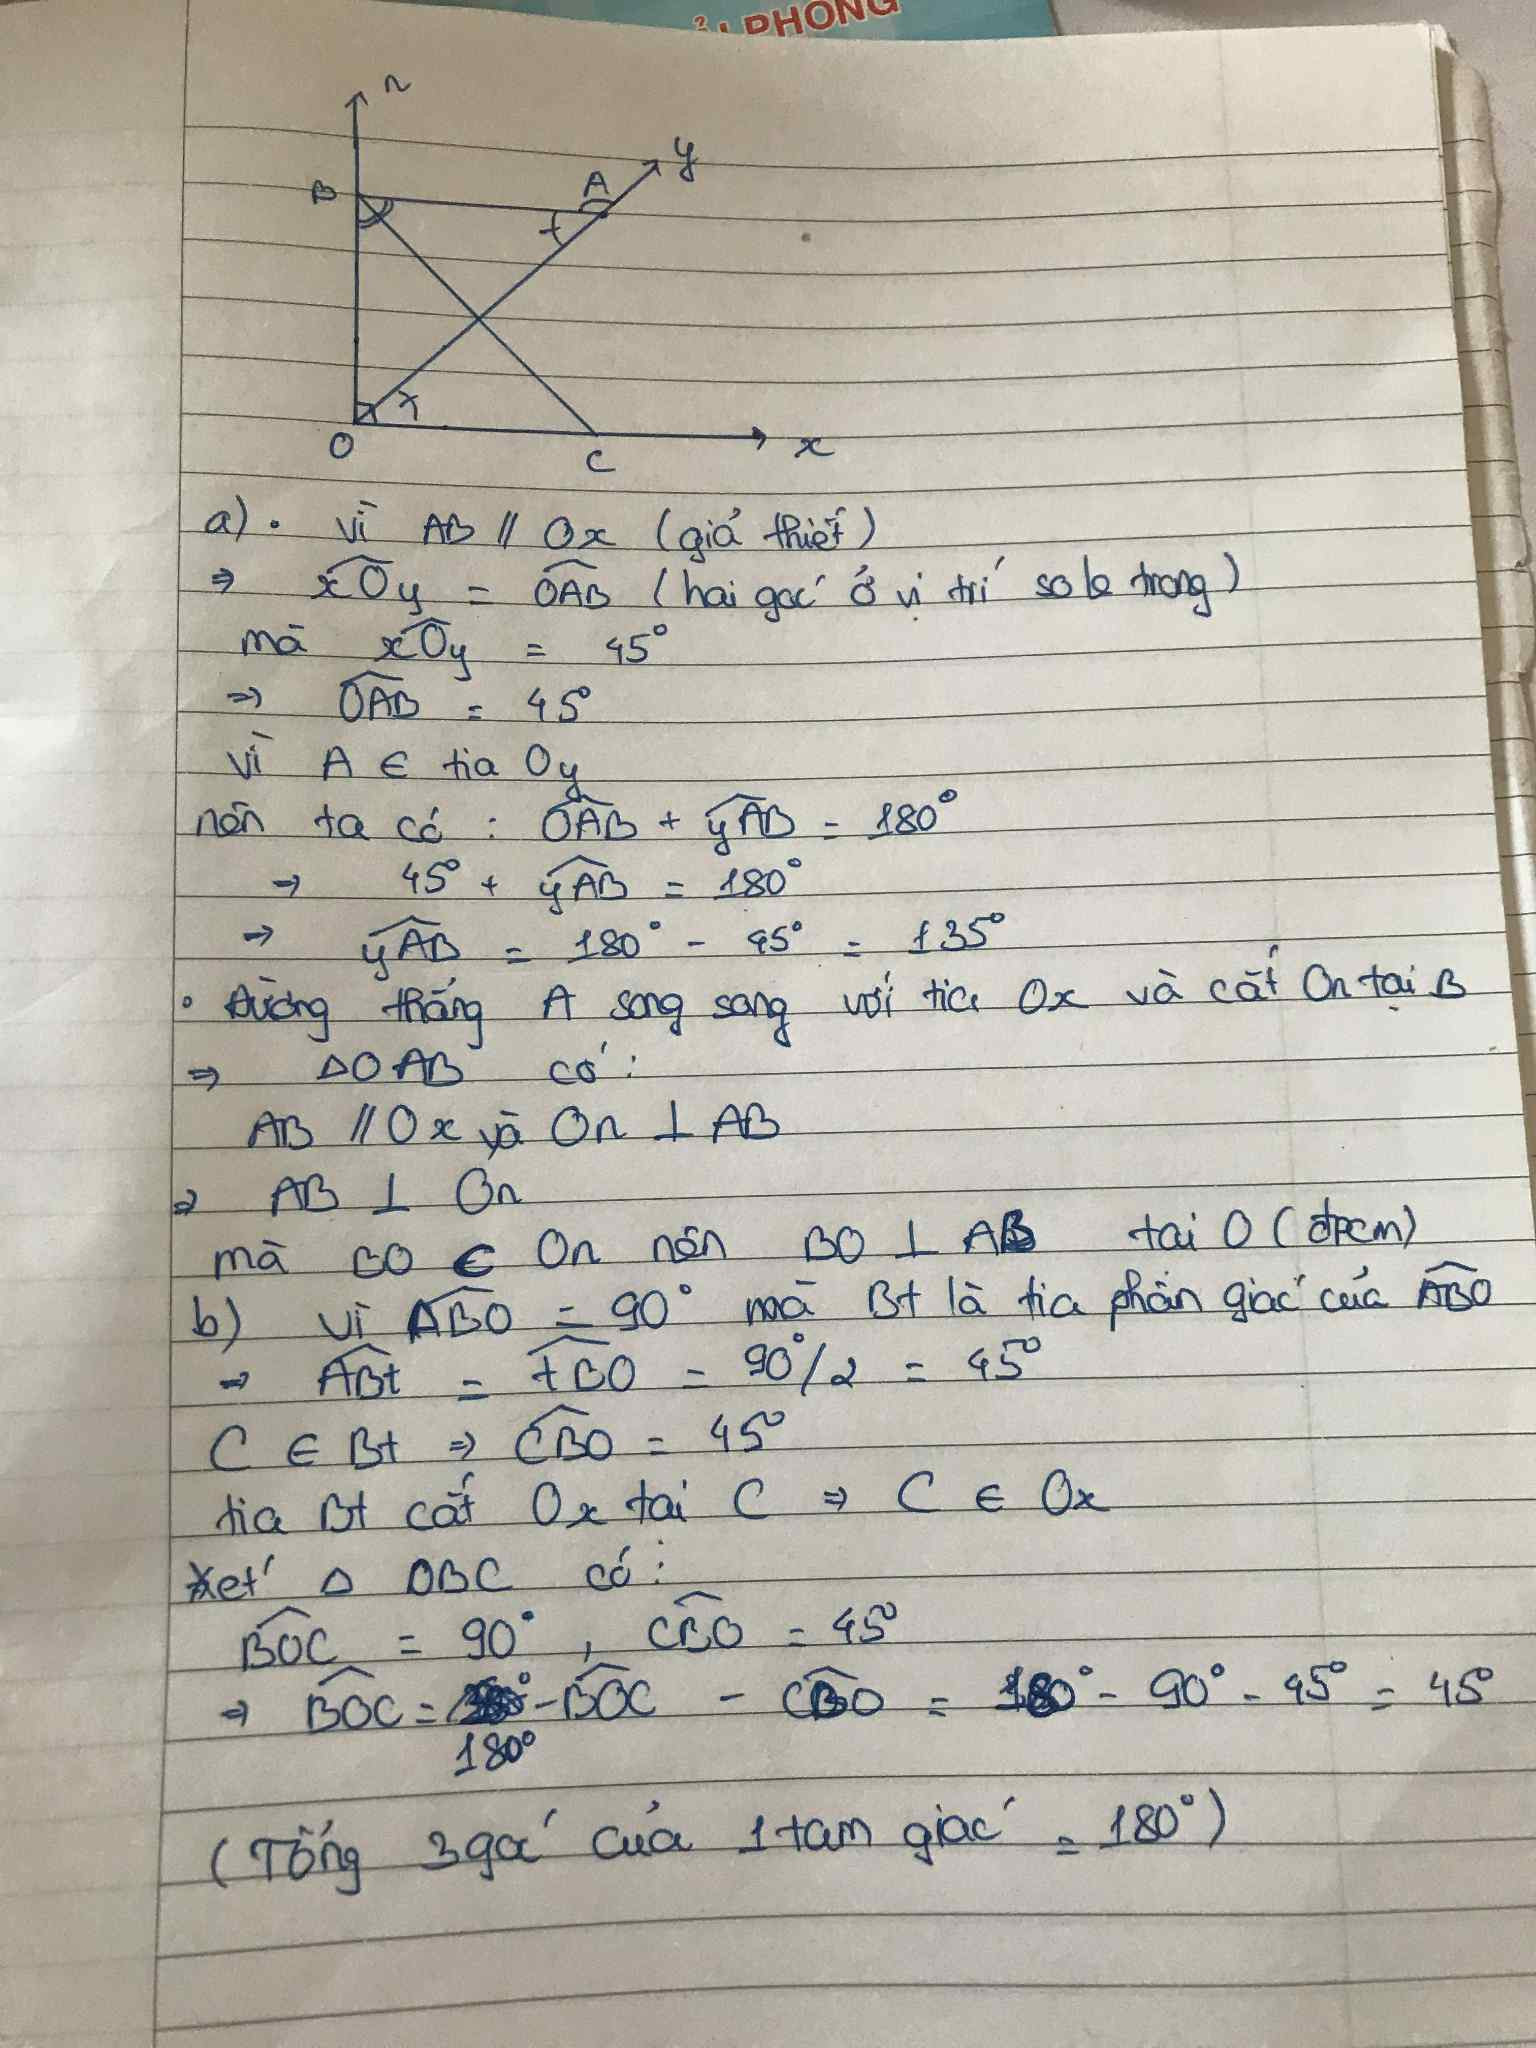 ẢI PHÒNG
n
y
B
A
O
C
x
a). vì AB // Ox (giả thiết)
⇒ xOy = OAB (hai góc ở vị trí so le trong)
mà xOy = 45°
⇒ OAB = 45°
vì A ∈ tia Oy
nên ta có : OAB + yAB = 180°
⇒ 45° + yAB = 180°
⇒ yAB = 180° - 45° = 135°
• Đường thẳng A song song với tia Ox và cắt On tại B
⇒ ΔOAB có:
AB // Ox và On ⊥ AB
⇒ AB ⊥ On
mà BO ∈ On nên BO ⊥ AB tai O (đpcm)
b) vì ABO = 90° mà Bt là tia phân giác của ABO
⇒ ABt = tBO = 90°/2 = 45°
C ∈ Bt ⇒ CBO = 45°
tia Bt cắt Ox tai C ⇒ C ∈ Ox
Xét Δ OBC có:
BOC = 90°, CBO = 45°
⇒ BOC = 180° - BOC - CBO = 180° - 90° - 45° = 45°
(Tổng 3 gó của 1 tam giác = 180°)